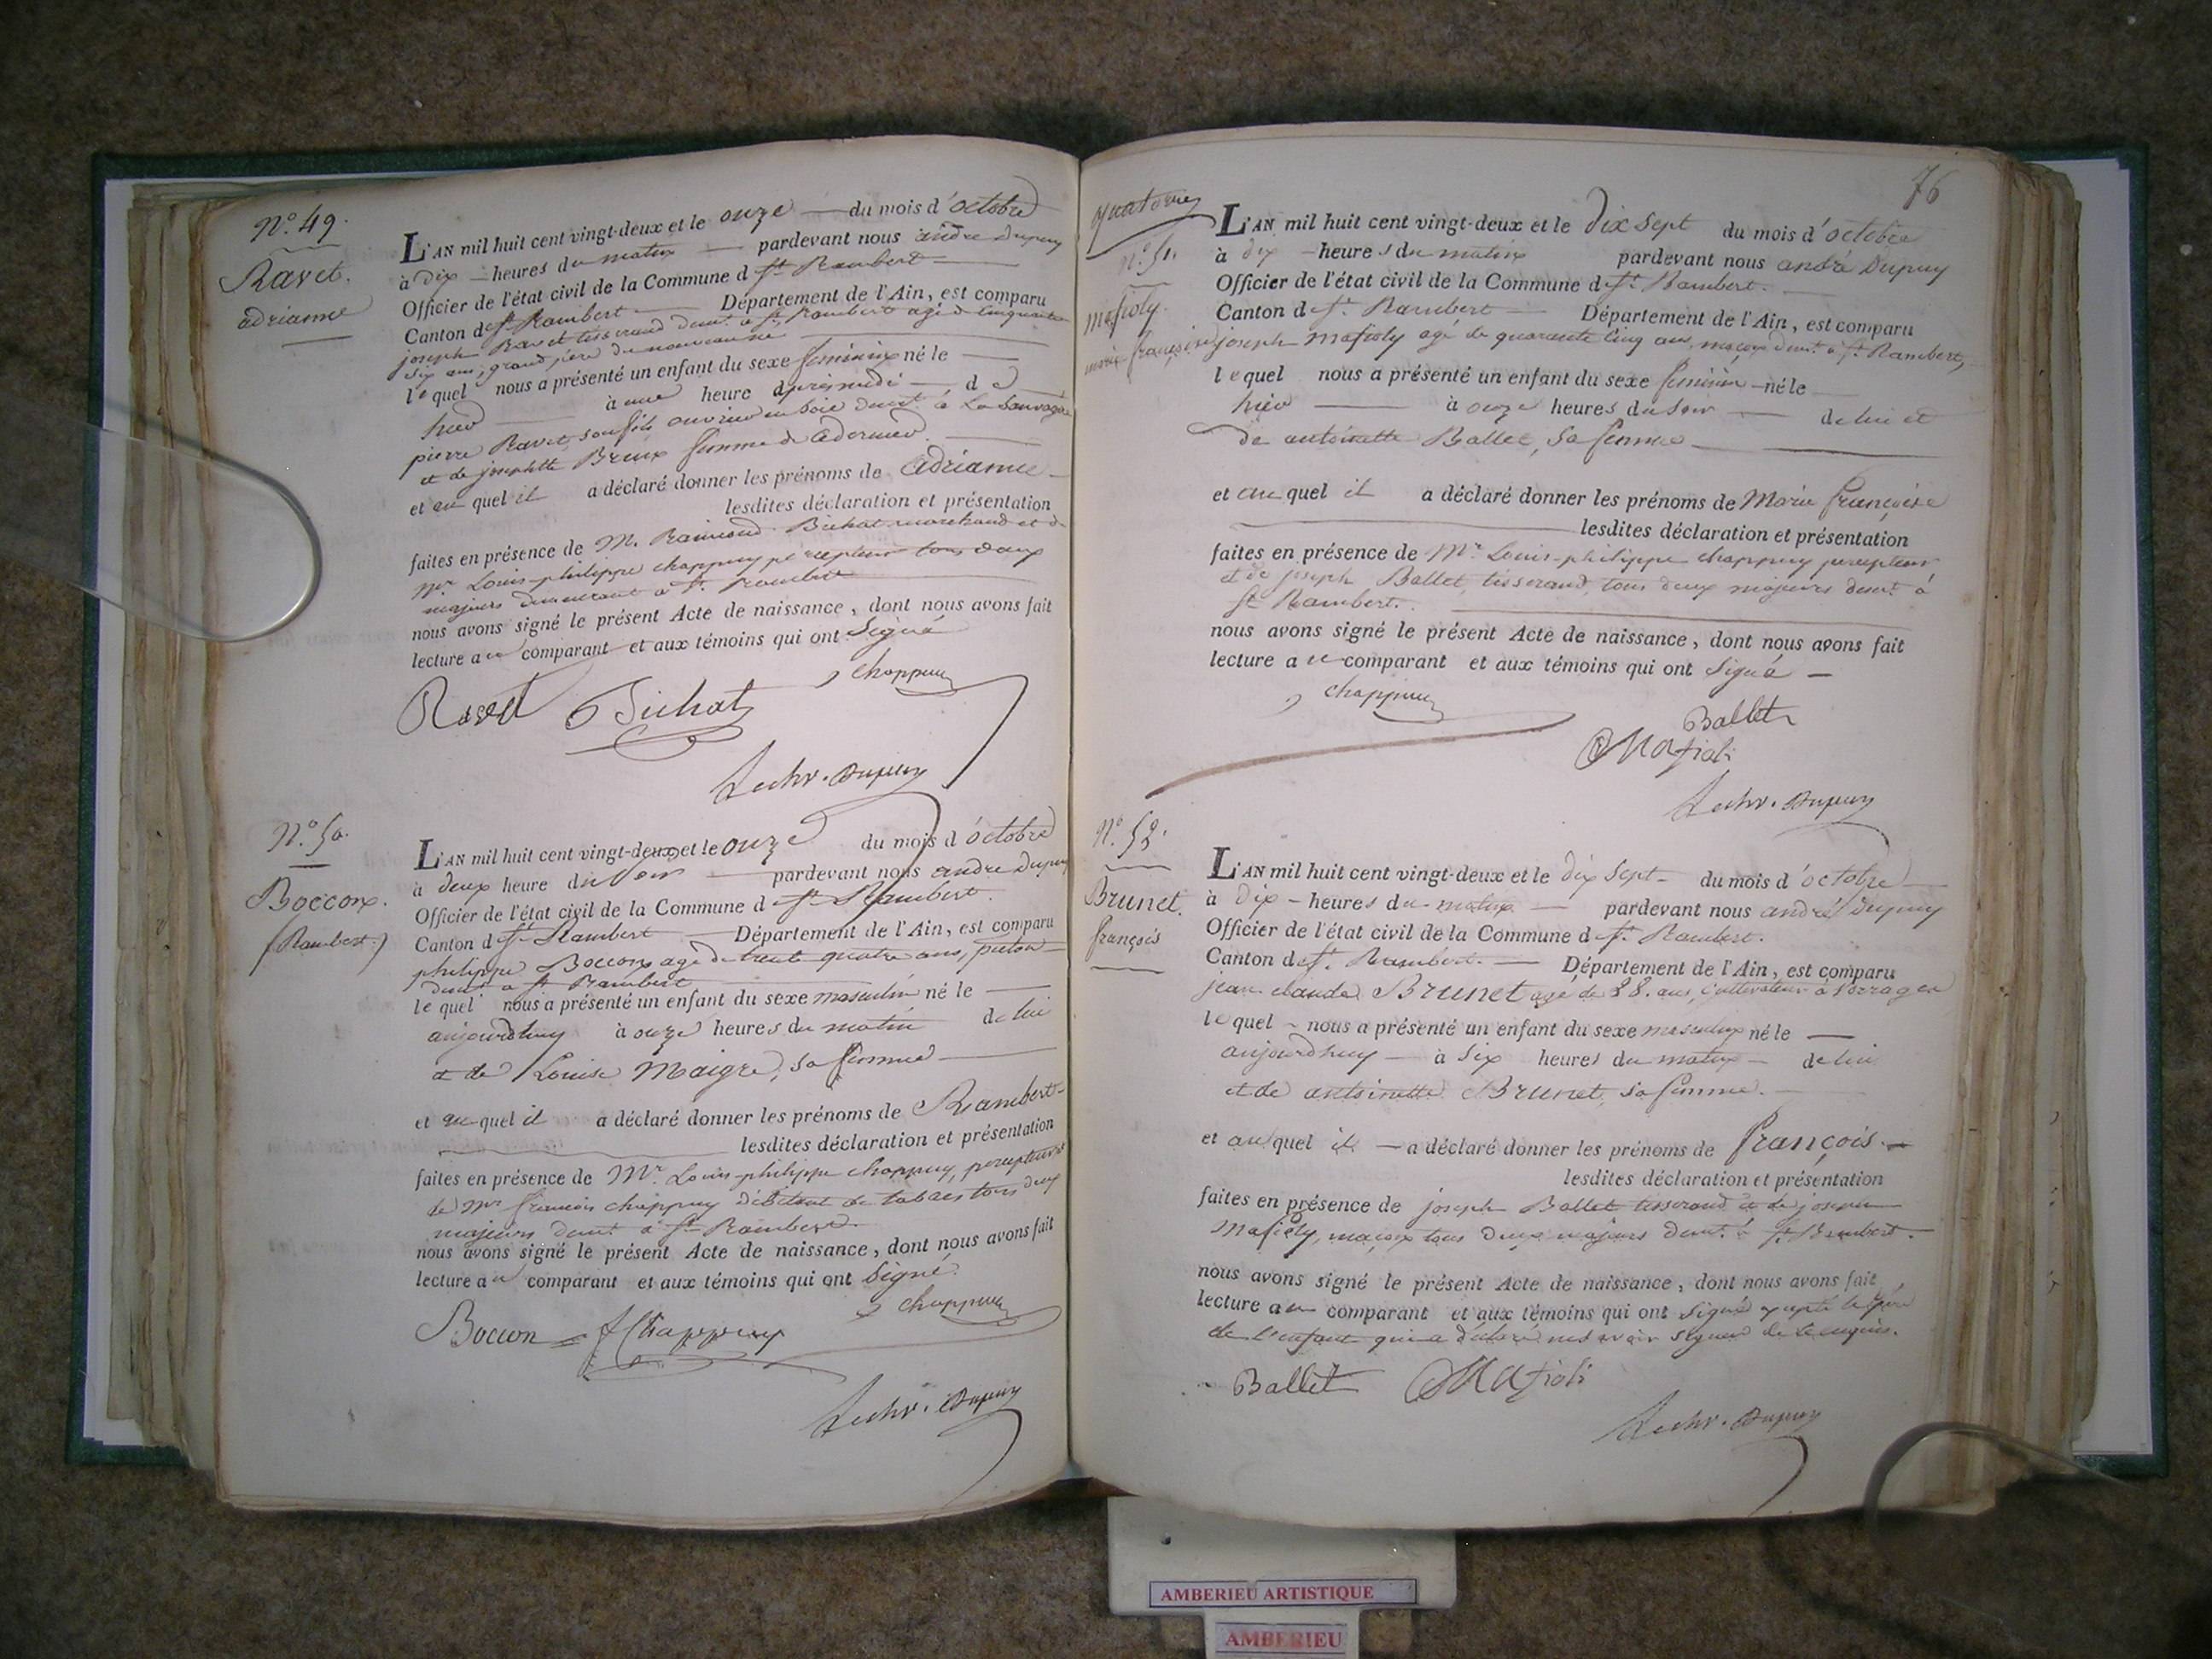 N.o 49.
Ravet.
adrianne
L'AN mil huit cent vingt-deux et le onze du mois d'octobre
à dix heures du matin pardevant nous andre Dupuy
Officier de l'état civil de la Commune d St Rambert
Canton d St Rambert Département de l'Ain, est comparu
joseph Ravet tisserand demt. a St Rambert agé de Cinquante
six ans, grand père du nouveau né
le quel nous a présenté un enfant du sexe feminin né le
hier à une heure d'après midi d
pierre Ravet, son fils ouvrier en soie demt. à La Sauvagère
et de josephtte Breux femme de
et au quel il a déclaré donner les prénoms de adrianne
lesdites déclaration et présentation
faites en présence de M. Raimond Bichat marchand et de
Mr Louis-philippe chappuy percepteur tous deux
majeurs demeurant a St Rambert
nous avons signé le présent Acte de naissance, dont nous avons fait
lecture au comparant et aux témoins qui ont Signé
chappuy
Ravet Bichat
Dupuy
N.o 50.
Boccon.
(Rambert.)
L'AN mil huit cent vingt-deux et le onze du mois d'octobre
à deux heure du Soir pardevant nous andre Dupuy
Officier de l'état civil de la Commune d St Rambert.
Canton d St Rambert Département de l'Ain, est comparu
philippe Boccon agé de trente quatre ans, pieton
demt a St Rambert
le quel nous a présenté un enfant du sexe masculin né le
aujourdhuy à onze heures du matin de lui
et de Louise Maigre, sa femme
et au quel il a déclaré donner les prénoms de Rambert
lesdites déclaration et présentation
faites en présence de Mr. Louis-philippe chappuy, percepteur et
de Mr francois chappuy débitant de tabacs tous deux
majeurs demt. a St Rambert.
nous avons signé le présent Acte de naissance, dont nous avons fait
lecture au comparant et aux témoins qui ont Signé
chappuy
Boccon f Chappuy
Dupuy
76
quatorze
n.o 51.
mafioly
marie françoise
L'AN mil huit cent vingt-deux et le Dix Sept du mois d'octobre
à dix heures du matin pardevant nous andré Dupuy
Officier de l'état civil de la Commune d St. Rambert.
Canton d St. Rambert Département de l'Ain, est comparu
joseph mafioly agé de quarante Cinq ans, maçon demt. a St Rambert,
le quel nous a présenté un enfant du sexe feminin né le
hier à onze heures du Soir de lui et
de antoinette Ballet, Sa femme
et au quel il a déclaré donner les prénoms de Marie françoise
lesdites déclaration et présentation
faites en présence de Mr. Louis-philippe chappuy percepteur
et de joseph Ballet, tisserand, tous deux majeurs demt. à
St Rambert.
nous avons signé le présent Acte de naissance, dont nous avons fait
lecture au comparant et aux témoins qui ont Signé
chappuy
Ballet
Mafioli
Dupuy
N.o 52.
Brunet.
françois
L'AN mil huit cent vingt-deux et le dix Sept du mois d'octobre
à Dix heures du matin pardevant nous andré Dupuy
Officier de l'état civil de la Commune d St. Rambert.
Canton d St. Rambert. Département de l'Ain, est comparu
jean claude Brunet agé de 28. ans, Cultivateur à
le quel nous a présenté un enfant du sexe masculin né le
aujourdhuy à Six heures du matin de lui
et de antoinette Brunet, sa femme.
et au quel il a déclaré donner les prénoms de françois.
lesdites déclaration et présentation
faites en présence de joseph Ballet tisserand et de joseph
Mafioly, maçon tous deux majeurs demt. à St Rambert.
nous avons signé le présent Acte de naissance, dont nous avons fait
lecture au comparant et aux témoins qui ont Signé excepté le père
de l'enfant qui a déclaré ne savoir signer de ce enquis.
Ballet Mafioli
Dupuy
AMBERIEU ARTISTIQUE
AMBERIEU